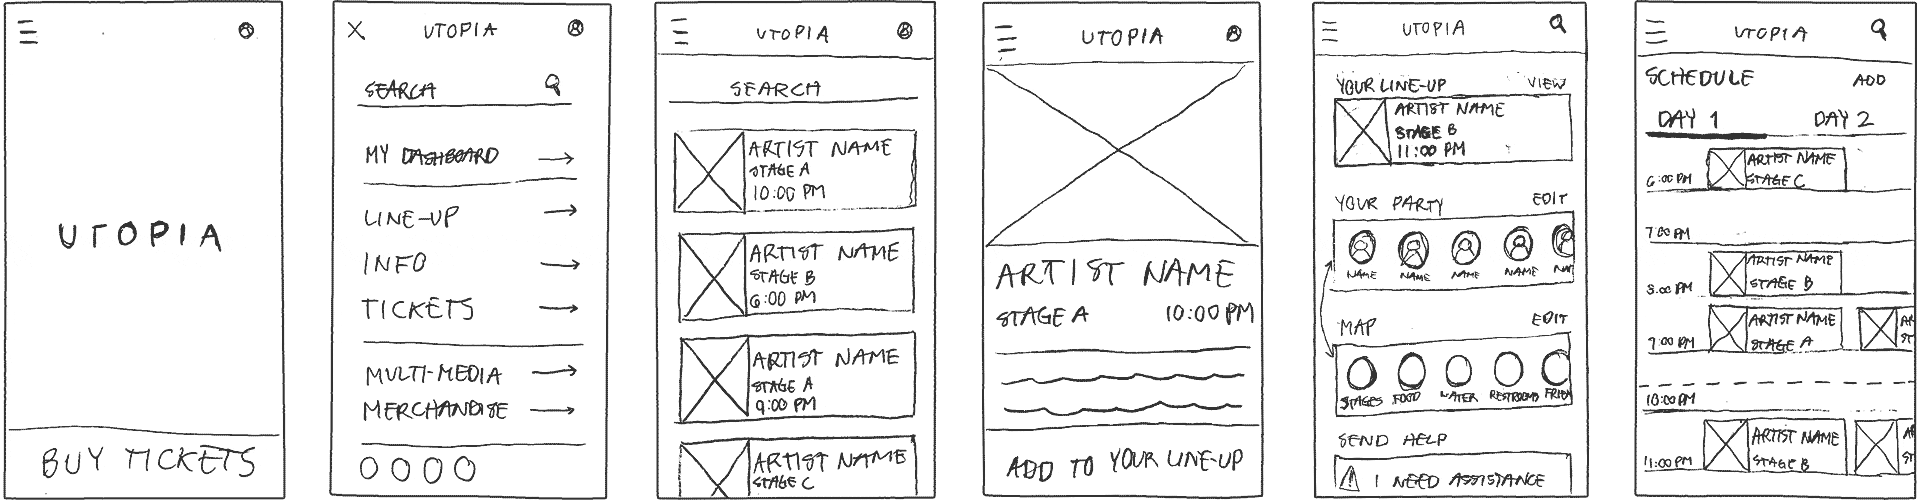 UTOPIA
BUY TICKETS
UTOPIA
SEARCH
MY DASHBOARD
LINE-UP
INFO
TICKETS
MULTI-MEDIA
MERCHANDISE
UTOPIA
SEARCH
ARTIST NAME
STAGE A
10:00 PM
ARTIST NAME
STAGE B
6:00 PM
ARTIST NAME
STAGE A
9:00 PM
ARTIST NAME
STAGE C
UTOPIA
ARTIST NAME
STAGE A 10:00 PM
ADD TO YOUR LINE-UP
UTOPIA
YOUR LINE-UP VIEW
ARTIST NAME
STAGE B
11:00 PM
YOUR PARTY EDIT
NAME NAME NAME NAME NA
MAP EDIT
STAGES FOOD WATER RESTROOMS FRIEN
SEND HELP
I NEED ASSISTANCE
UTOPIA
SCHEDULE ADD
DAY 1 DAY 2
ARTIST NAME
6:00 PM STAGE C
7:00 PM
ARTIST NAME
8:00 PM STAGE B
ARTIST NAME AR
9:00 PM STAGE A ST
10:00 PM
ARTIST NAME AR
11:00 PM STAGE B ST